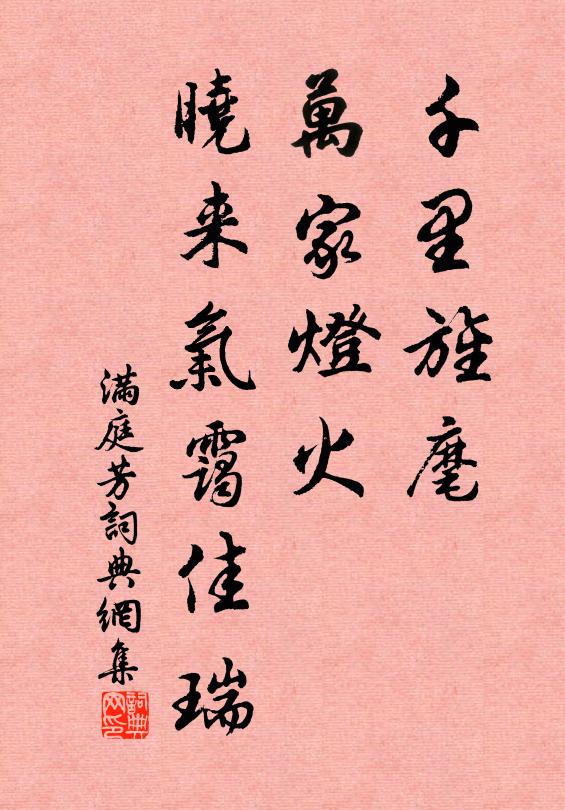 千里旌麾
萬家燈火
曉来氣靄佳瑞
滿庭芳詞典網集
詞典
网印